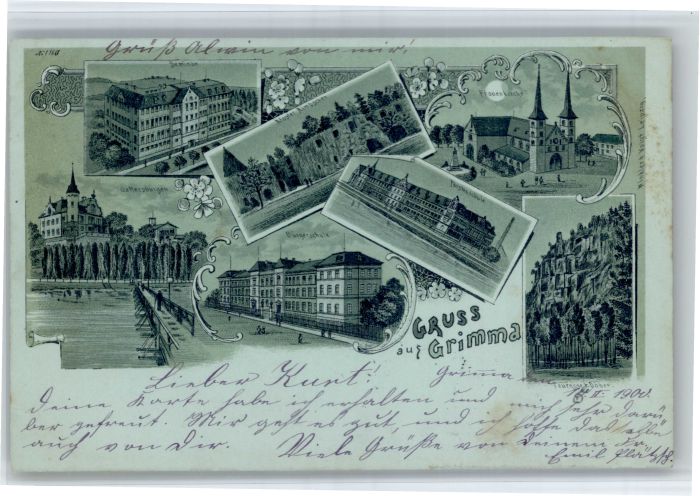 No 1168
Grüß Alwin von mir!
Seminar
Frauenkirche
Gattersburg
Bürgerschule
Gruss
aus Grimma
Lieber Kurt! Grimma
II. 1900.
deine Karte habe ich erhalten und mich sehr darü
ber gefreut. Mir geht es gut, und ich hoffe dasselbe
auch von Dir. Viele Grüße von deinem Fr.
Emil